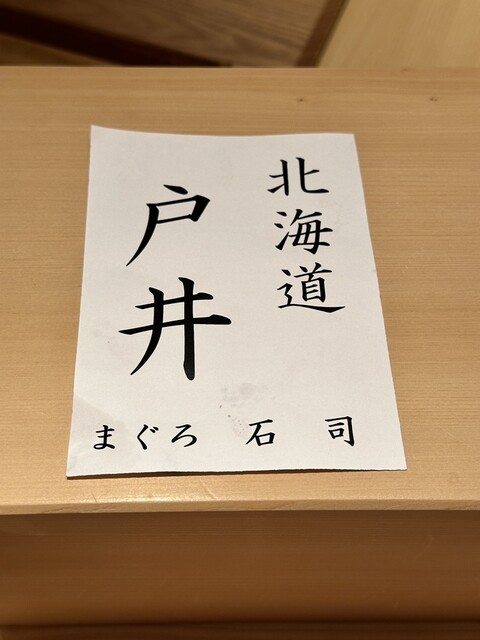 北海道
戸井
まぐろ 石司